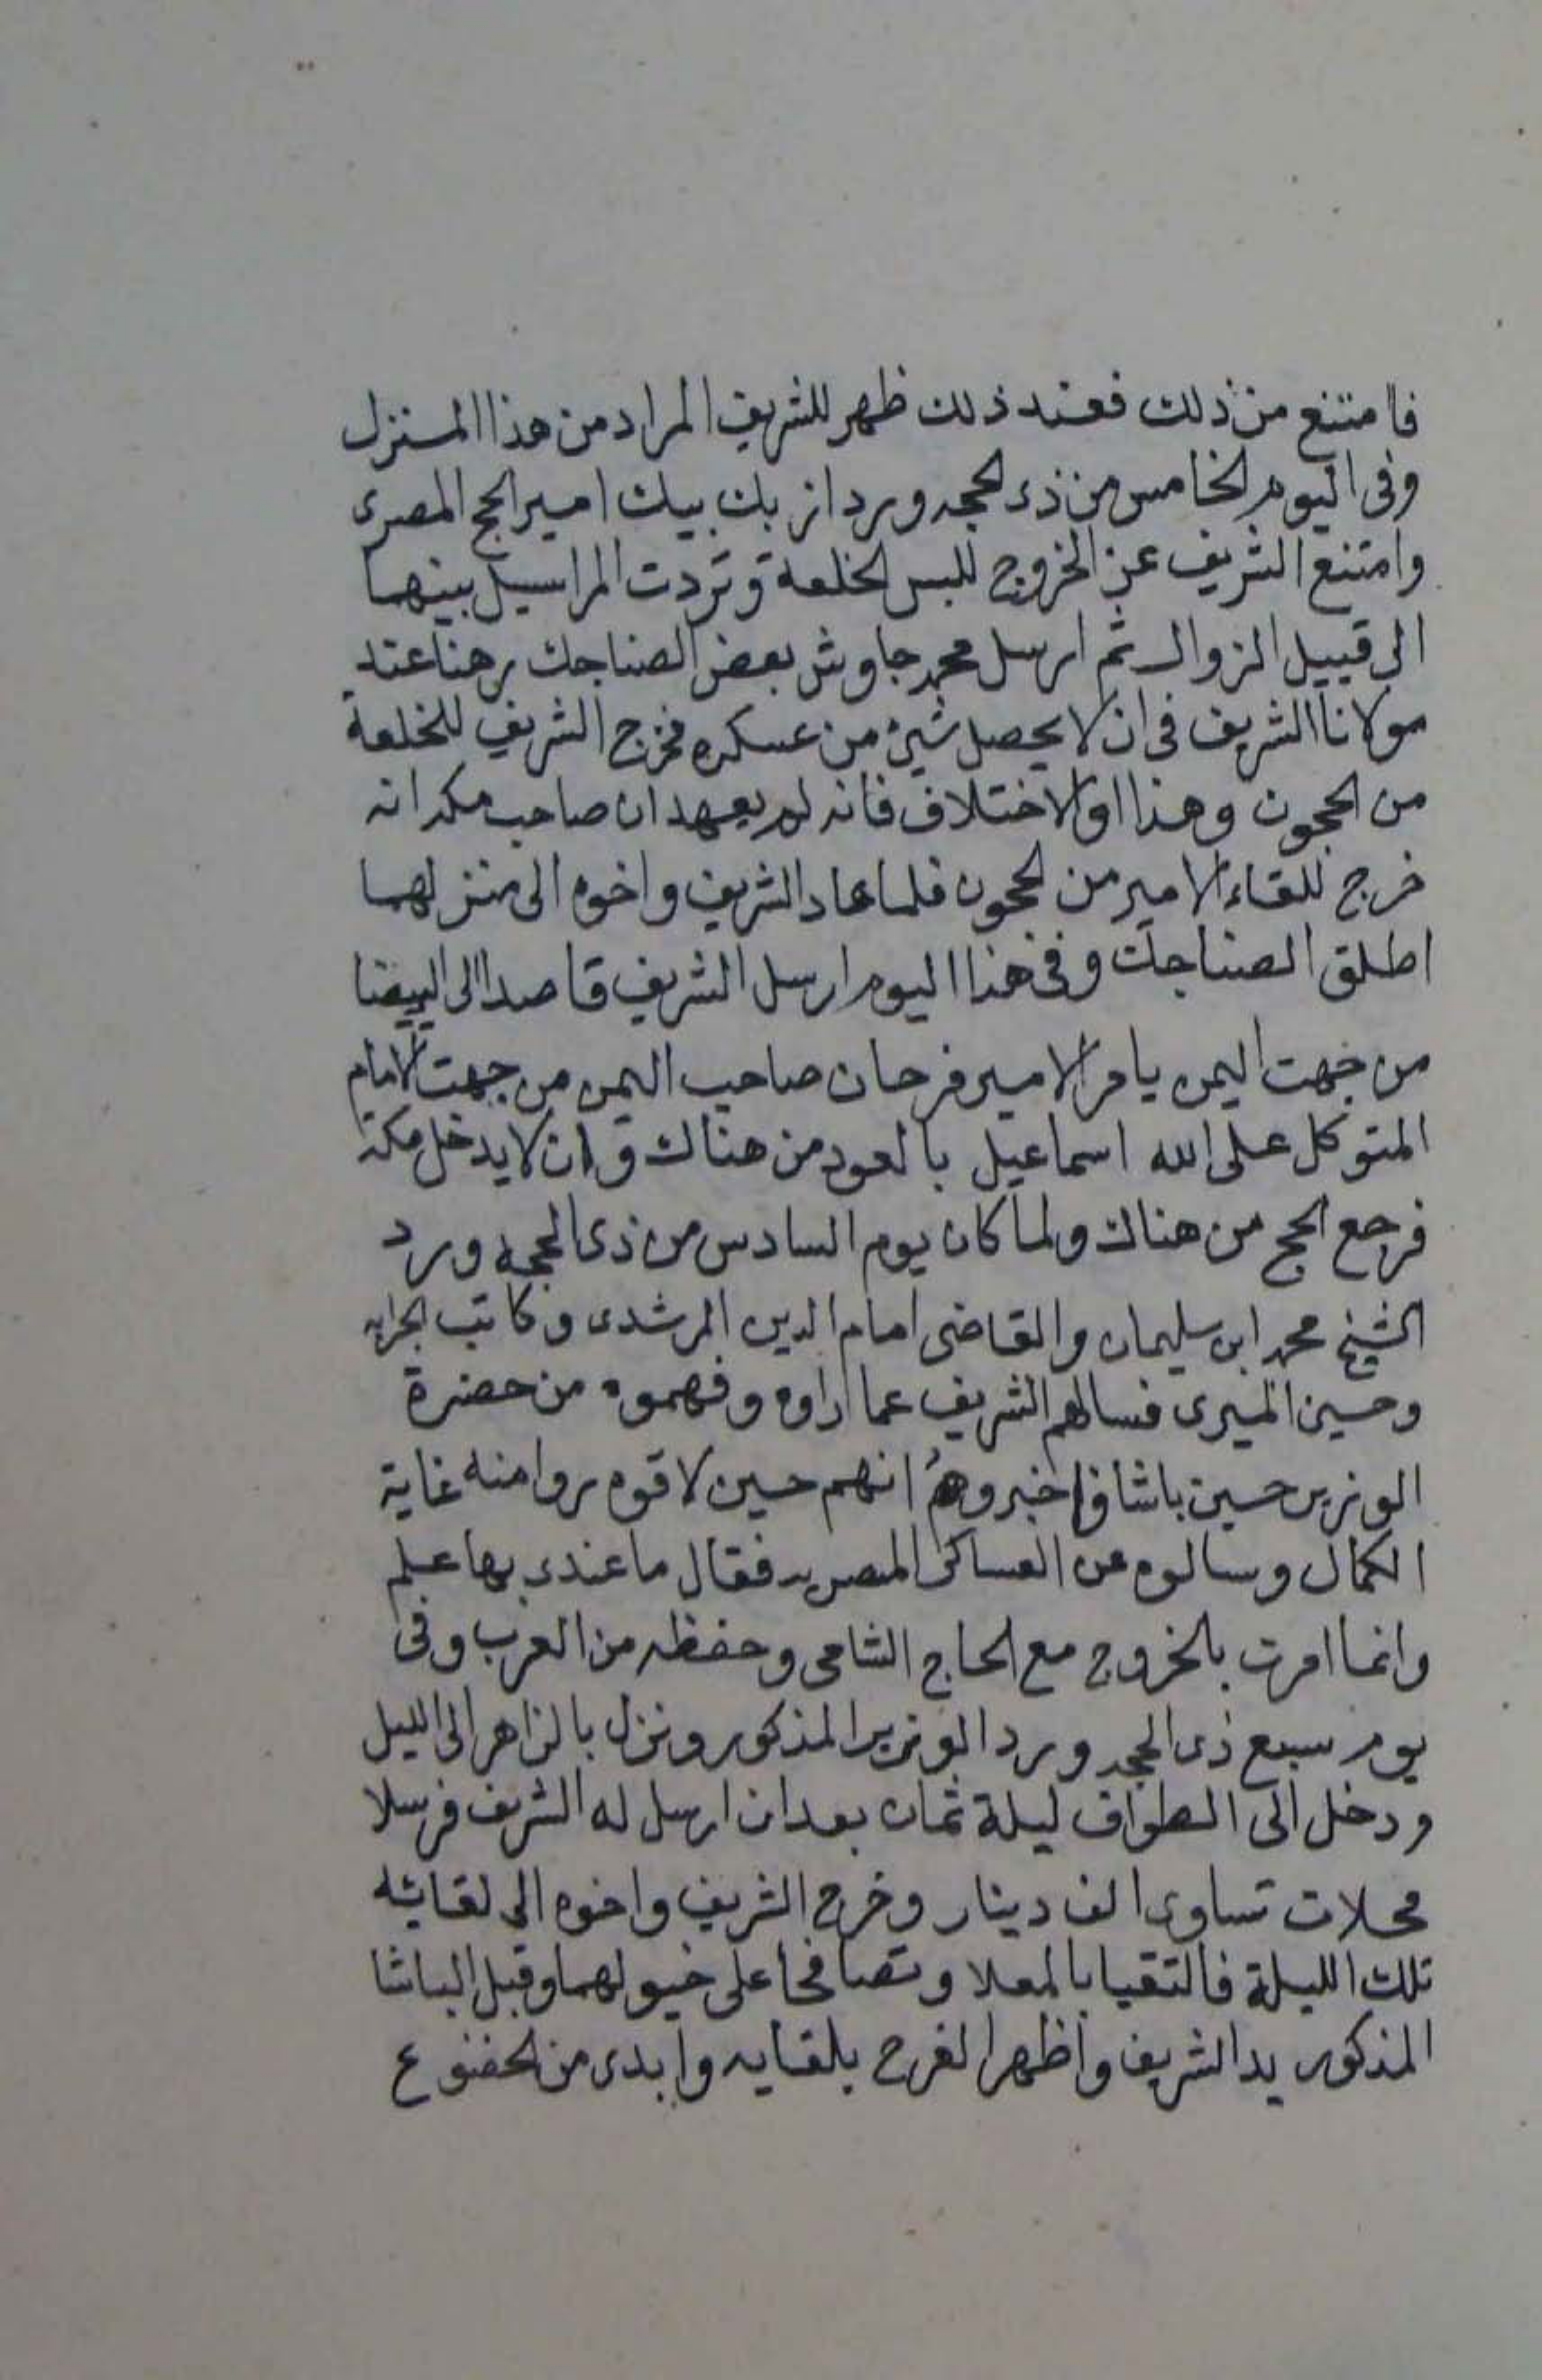 فامتنع من ذلك فعند ذلك ظهر للشريف المراد من هذا المنزل
وفى اليوم الخامس من ذى الحجه ورد ازبك بيك امير الحج المصرى
وامتنع الشريف عن الخروج للبس الخلعة وتردت المراسيل بينهما
الى قبيل الزوال ثم ارسل محمد جاوش بعض الصناجك رهنا عند
مولانا الشريف فى ان لا يحصل شيئ من عسكره فخرج الشريف للخلعة
من الحجون وهذا اول الاختلاف فانه لم يعهد ان صاحب مكه انه
خرج للقاء الامير من الحجون فلما عاد الشريف واخوه الى منزلهما
اطلق الصناجك وفى هذا اليوم ارسل الشريف قاصدا الى البيضا
من جهت اليمن يامر الامير فرحان صاحب اليمن من جهت الامام
المتوكل على الله اسماعيل بالعود من هناك وان لا يدخل مكة
فرجع الحج من هناك ولما كان يوم السادس من ذى الحجه ورد
الشيخ محمد ابن سليمان والقاضى امام الدين المرشدى وكاتب الجرايه
وحسين الميرى فسالهم الشريف عما راوه وفهموه من حضرة
الوزير حسين باشا فاخبروه انهم حين لاقوه روا منه غاية
الكمال وسالوه عن العساكر المصريه فقال ما عندى بها علم
وانما امرت بالخروج مع الحاج الشامى وحفظه من العرب وفى
يوم سبع ذى الحجه ورد الوزير المذكور ونزل بالزاهر الى الليل
ودخل الى الطواف ليلة ثمان بعد ان ارسل له الشريف فرسلا
محلات تساوى الف دينار وخرج الشريف واخوه الى لقائه
تلك الليلة فالتقيا بالمعلا وتصافحا على خيولهما وقبل الباشا
المذكور يد الشريف واظهر الفرح بلقايه وابدى من الخضوع